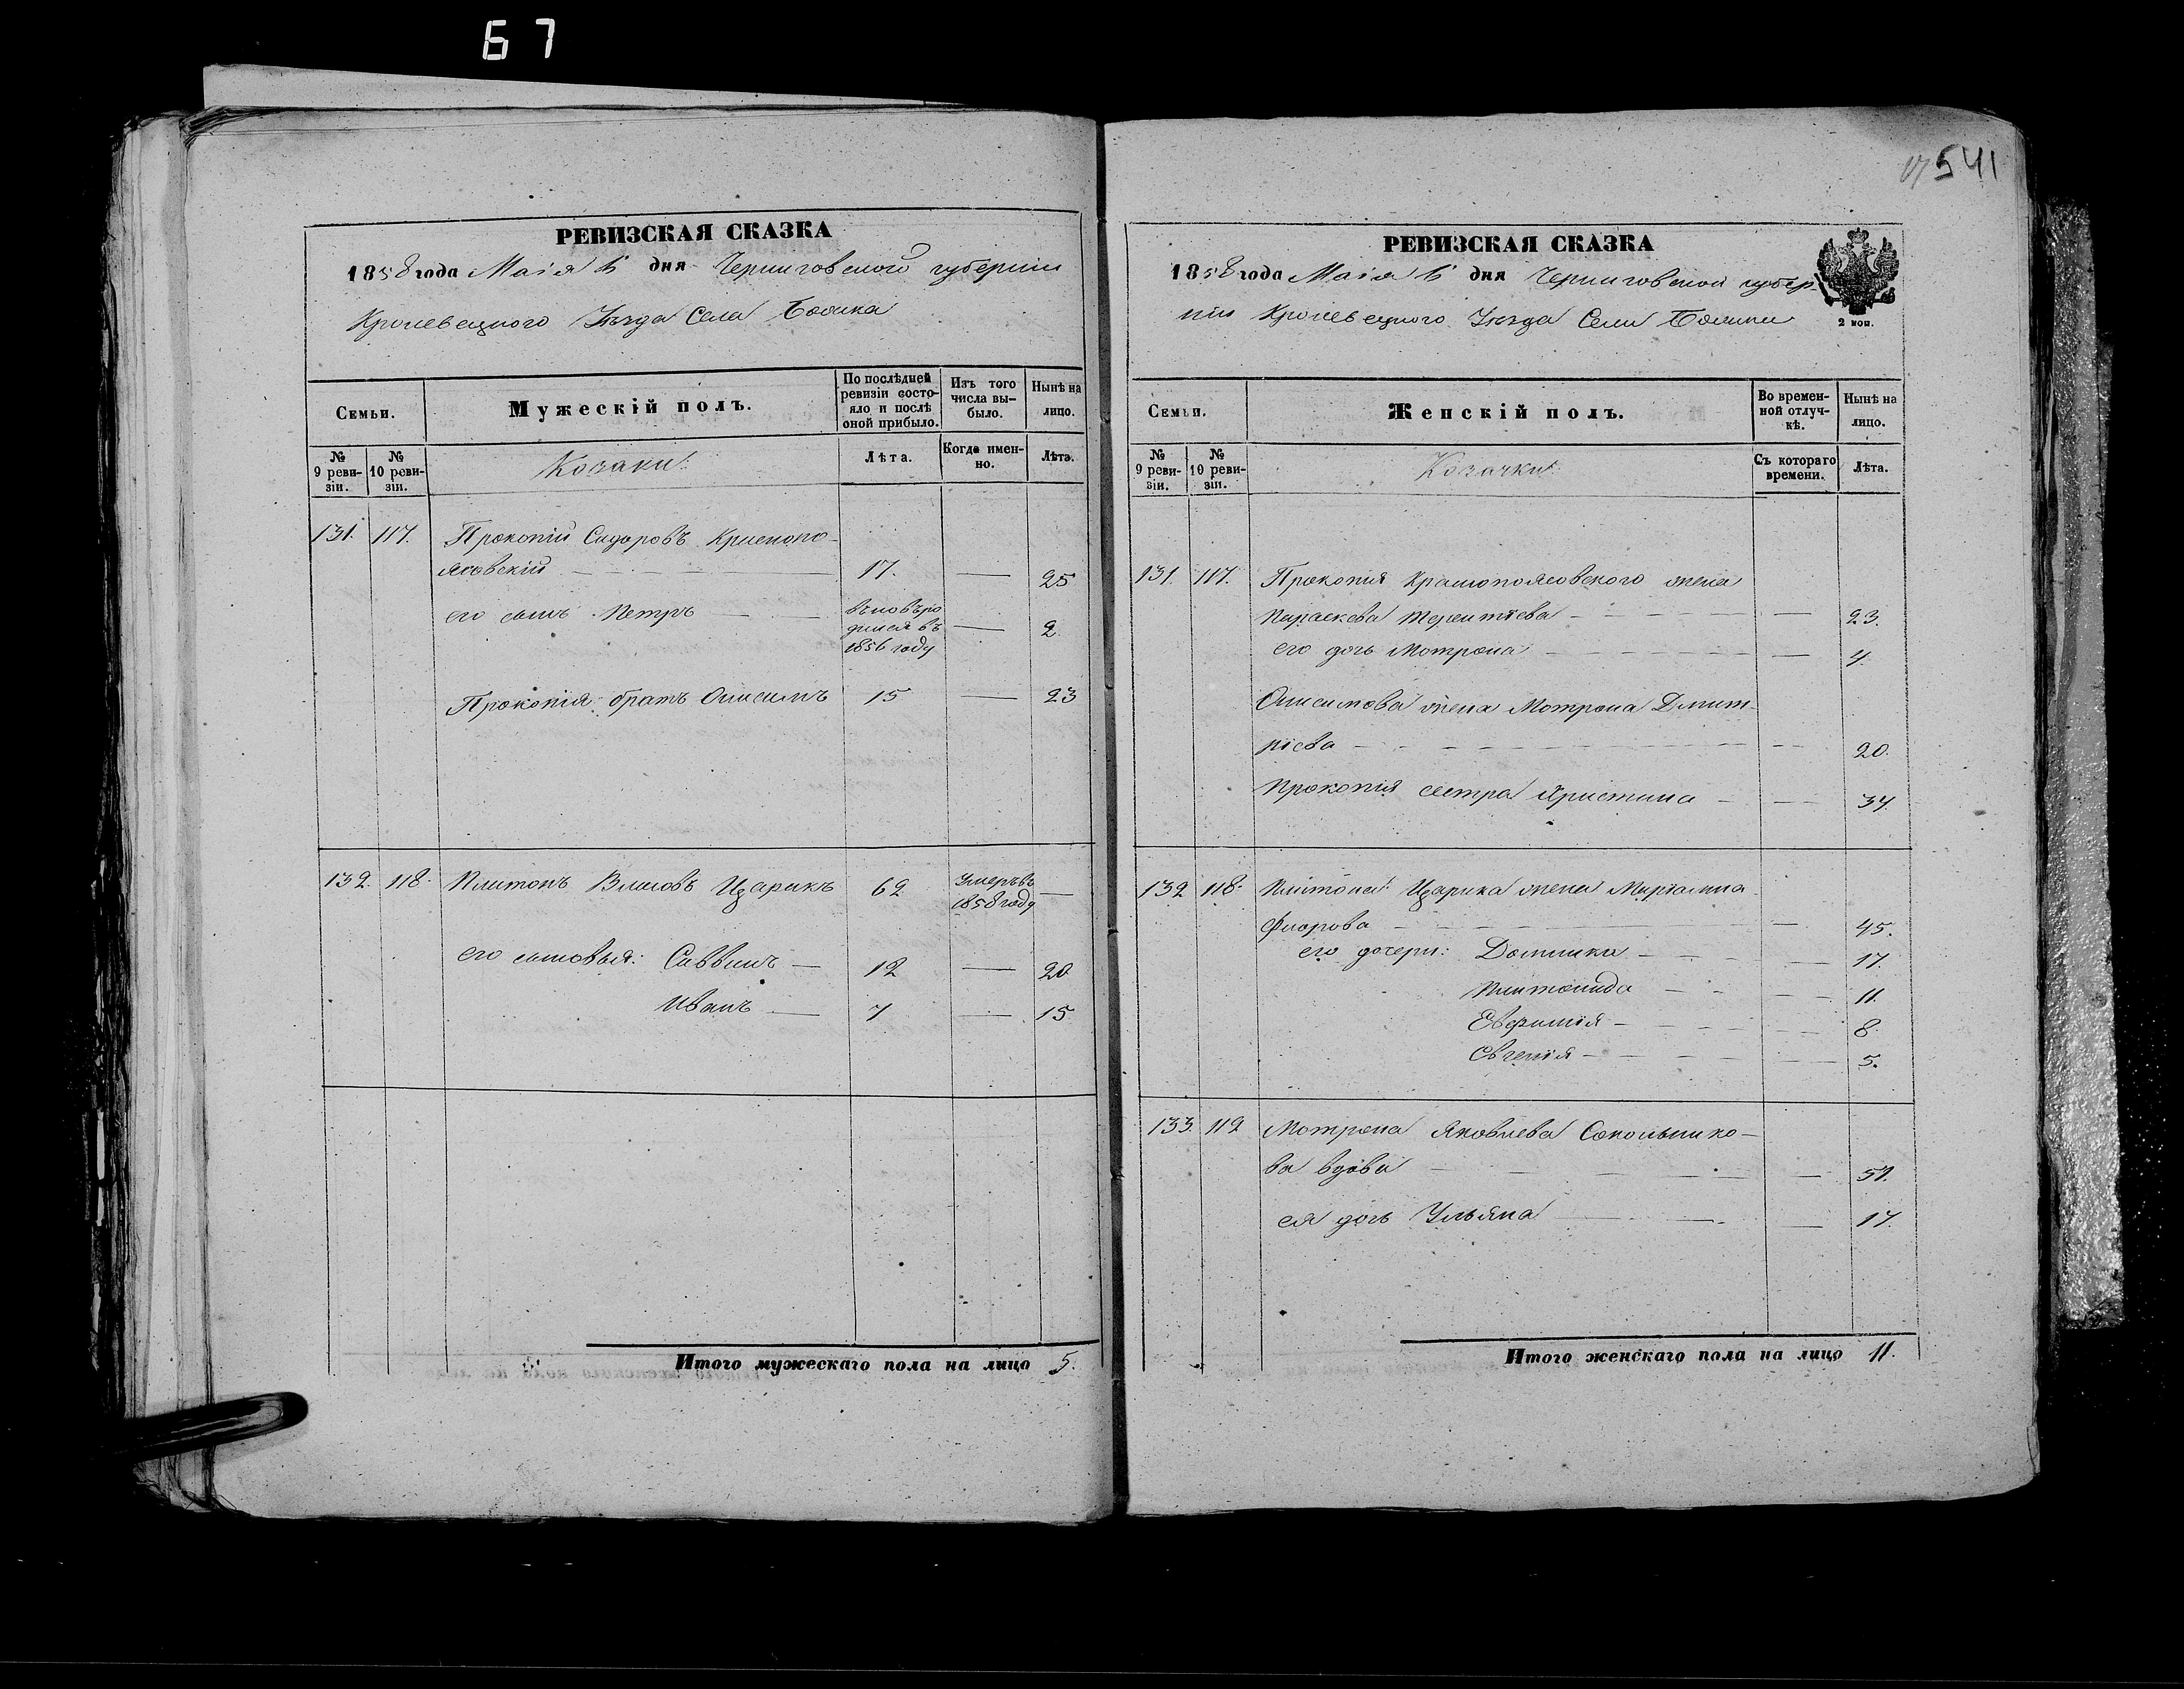 67
541
РЕВИЗСКАЯ СКАЗКА
1858 года Маія 6 дня Черниговской губерніи
Кролевецкого Уѣзда Села
Семьи.
Мужескій полъ.
По послѣдней ревизіи состо-
яло и послѣ
оной прибыло.
Изъ того
числа вы-
было.
Нынѣ на
лицо.
№
9 реви-
зіи.
№
10 реви-
зіи.
Козаки:
Лѣта.
Когда имен-
но.
Лѣта.
131. 117. Прокопій Сидоровъ Краснопо-
ясовскій — 17. — 25
его сынъ Петръ — вновь ро
дился въ — 2.
1856 году
Прокопія братъ Онисимъ 15 — 23
132. 118. Платонъ Власовъ Царикъ 62 Умеръ въ —
1858 году
его сыновья: Саввинъ — 12 — 20
Иванъ — 7 — 15
Итого мужескаго пола на лицо 5.
РЕВИЗСКАЯ СКАЗКА
1858 года Маія 6 дня Черниговской губер-
ніи Кролевецкого Уѣзда Села
2 коп.
Семьи.
Женскій полъ.
Во времен-
ной отлуч-
кѣ.
Нынѣ на
лицо.
№
9 реви-
зіи.
№
10 реви-
зіи.
Козачки:
Съ котораго
времени.
Лѣта.
131. 117. Прокопія Краснопоясовского жена
Параскева Терентіева — — 23.
его дочь Мотрона — — 4.
Онисимова жена Мотрона Дмит-
ріева — — 20.
Прокопія сестра Христина — — 34.
132 118. Платона Царика жена Маріамна
Флорова — — 45.
его дочери: Домника — — 17.
Платонида — — 11.
Евфимія — — 8.
Евгенія — — 5.
133. 119 Мотрона Яковлева Сокольнико-
ва вдова — — 51.
ея дочь Ульяна — — 17.
Итого женскаго пола на лицо 11.